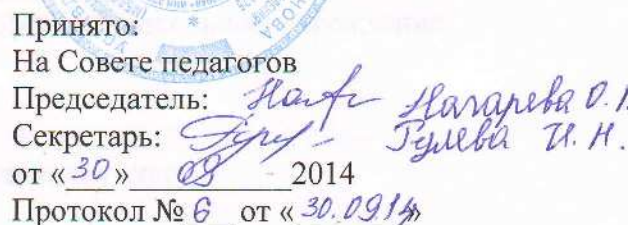 Принято:
На Совете педагогов
Председатель: Назарева О.
Секретарь: Гулева И. Н.
от «30» 09 2014
Протокол № 6 от «30.09.14»